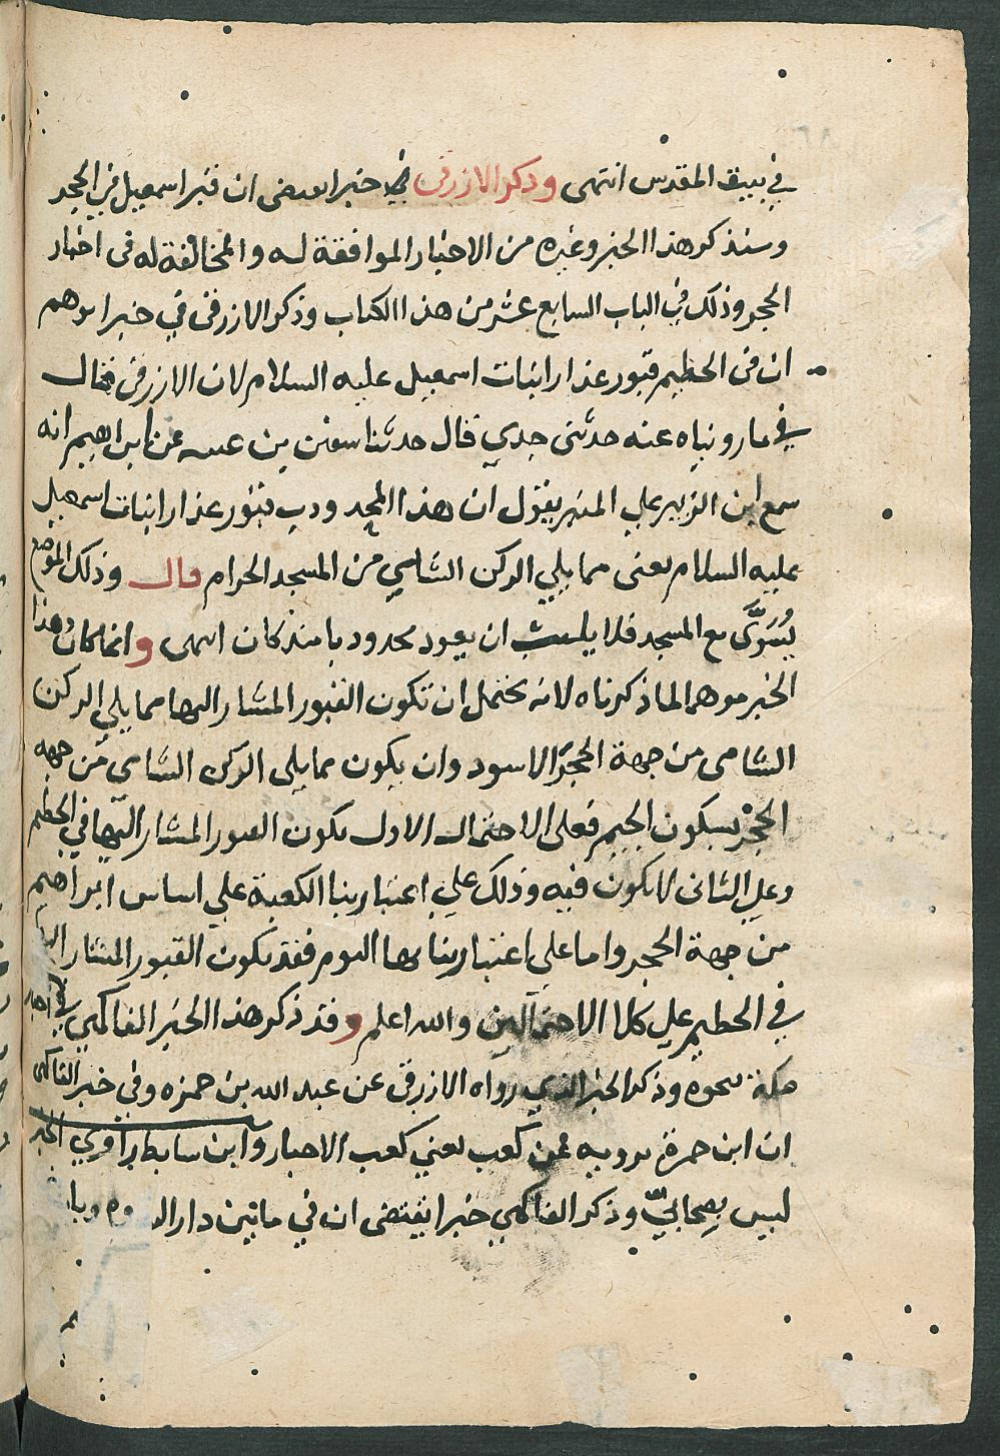 في بيت المقدس انتهى وذكر الازرقي خبرا يقتضى ان قبر اسمعيل في الحجر
وسنذكر هذا الخبر وغيره من الاخبار الموافقة له والمخالفة له فى اخبار
الحجر وذلك في الباب السابع عشر من هذا الكتاب وذكر الازرقى في خبرا يوهم
ان فى الحطيم قبور عذارا بنات اسمعيل عليه السلام لان الازرقى قال
في ما رويناه عنه حدثنى جدي قال حدثنا سفين بن عيينه عن ابراهيم انه
سمع ابن الزبير علي المنبر يقول ان هذا المحدودب قبور عذارا بنات اسمعيل
عليه السلام يعنى مما يلي الركن الشامي من المسجد الحرام قال وذلك الموضع
يُسَوَّى مع المسجد فلا يلبث ان يعود محدودبا منذ كان انتهى وانما كان هذا
الخبر موهما لما ذكرناه لانه يحتمل ان تكون القبور المشار اليها مما يلي الركن
الشامى من جهة الحجَر الاسود وان يكون مما يلى الركن الشامى من جهه
الحجْر بسكون الجيم فعلى الاحتمال الاول يكون القبور المشار اليها في الحطيم
وعلي الثانى لا يكون فيه وذلك علي اعتبار بنا الكعبة علي اساس ابراهيم
من جهة الحجر واما على اعتبار بنايها اليوم فقد يكون القبور المشار اليها
في الحطيم علي كلا الاحتمالين والله اعلم وقد ذكر هذا الخبر الفاكهي في اخبار
مكة نحوه وذكر الخبر الذي رواه الازرقى عن عبد الله بن حمزه وفى خبر الفاكهى
ان ابن حمزة يرويه عن كعب يعني كعب الاحبار وابن سابط راوي الخبر
ليس بصحابيّ وذكر الفاكهي خبرا يقتضى ان في ما بين دار